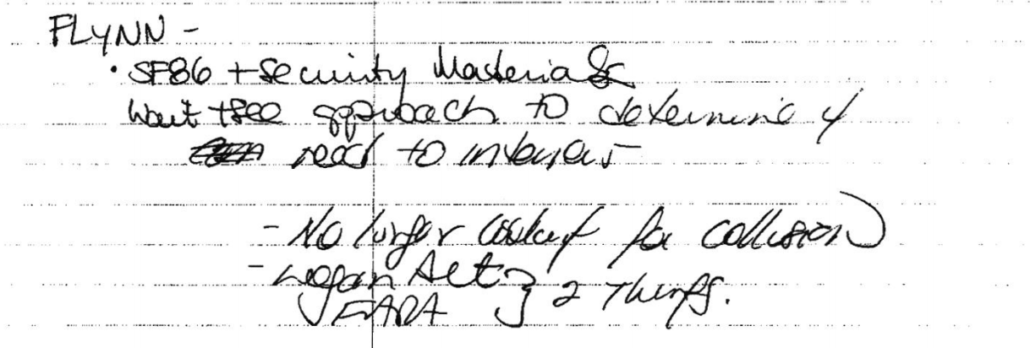 FLYNN -
• SF86 + Security Materials
Wait + see approach to determine if
need to interview
- No longer looking for collusion
- Logan Act } 2 things.
FARA